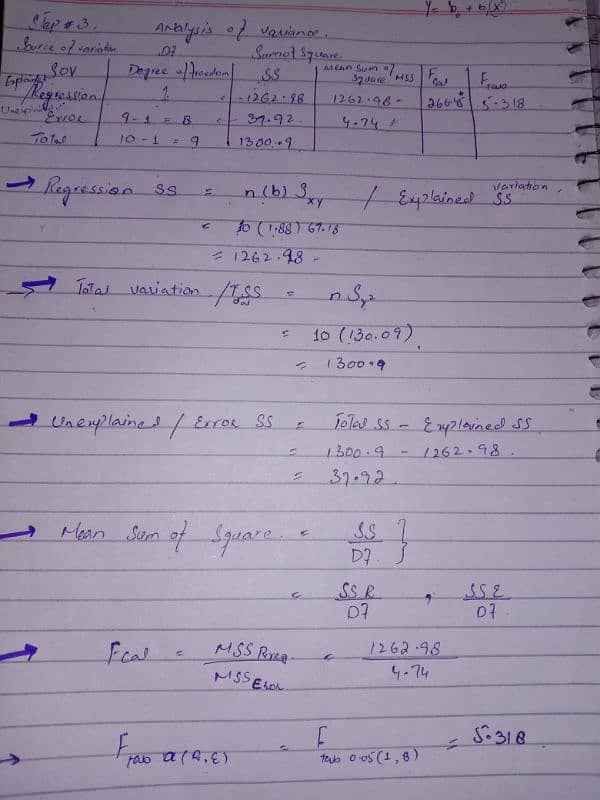 Y = b₀ + b(x)
Step # 3. Analysis of variance.
Source of variation Df Sum of Square
SOV Degree of freedom SS Mean Sum of Square MSS Fcal Ftab
Explained
/Regression 1 1262.98 1262.98 266.4 5.318
Unexplained
Error 9-1 = 8 37.92 4.74
Total 10-1 = 9 1300.9
→ Regression SS = n(b) Sxy / Explained variation SS
= 10 (1.88) 67.18
= 1262.98
→ Total variation / T.SS = n Sy²
= 10 (130.09)
= 1300.9
→ Unexplained / Error SS = Total SS - Explained SS
= 1300.9 - 1262.98.
= 37.92
→ Mean Sum of Square = SS / Df }
= SSR / Df , SSE / Df
→ Fcal = MSS Reg. / MSS Error = 1262.98 / 4.74
→ Ftab α(R,E) = Ftab 0.05(1,8) = 5.318